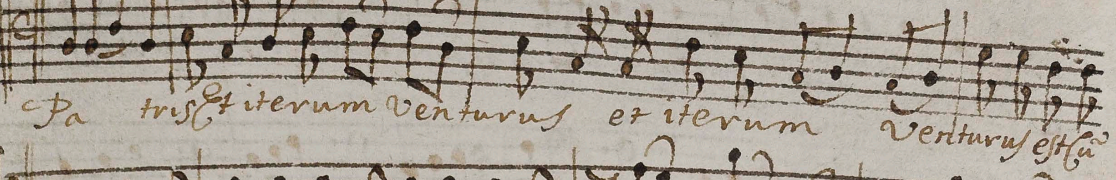 Pa tris Et iterum venturus et iterum venturus est cũ